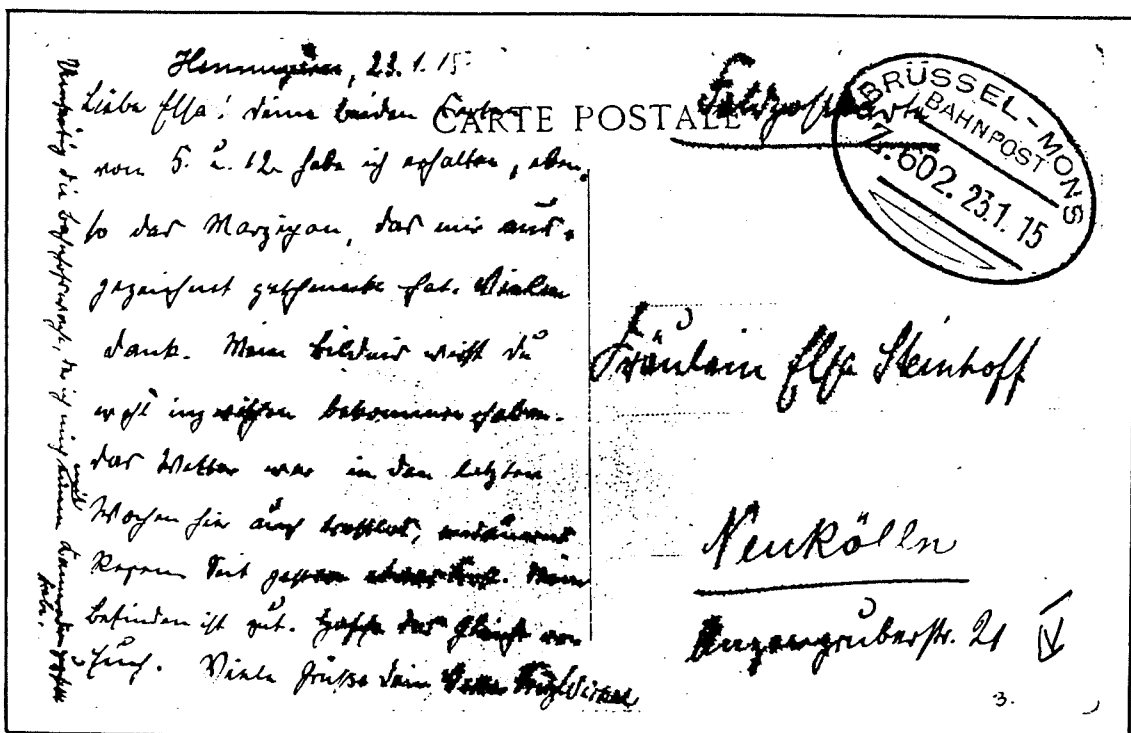 Hennuyères, 23.1.15
Liebe Elsa! Deine beiden Karten
vom 5. u. 12. habe ich erhalten, eben-
so das Marzipan, das mir aus-
gezeichnet geschmeckt hat. Vielen
Dank. Mein Bildnis wirst du
wohl inzwischen bekommen haben.
Das Wetter war in den letzten
Wochen hier auch trostlos, andauernd
Regen. Seit gestern etwas Frost. Mein
Befinden ist gut. Hoffe das Gleiche von
Euch. Viele Grüße Dein Vetter
die Bahnhofswache, die ich mit
Kameraden
habe.
CARTE POSTALE
Feldpostkarte
BRÜSSEL-MONS
BAHNPOST
Z.602. 23.1.15
Fräulein Elsa Steinhoff
Neukölln
Anzengruberstr. 21
3.